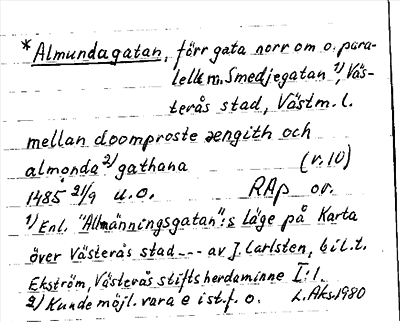 *Almundagatan, förr gata norr om o. para-
lellt m. Smedjegatan 1), Väs-
terås stad, Västm. l.
mellan doomproste ængith och
almonda 2) gathana (v.10)
1485 21/9 u.o. RAp or.
1) Enl. "Allmänningsgatan":s läge på Karta
över Västerås stad --- av J. Carlsten, bil. t.
Ekström, Västerås stifts herdaminne I:1.
2) Kunde möjl. vara e ist. f. o. L.Aks. 1980